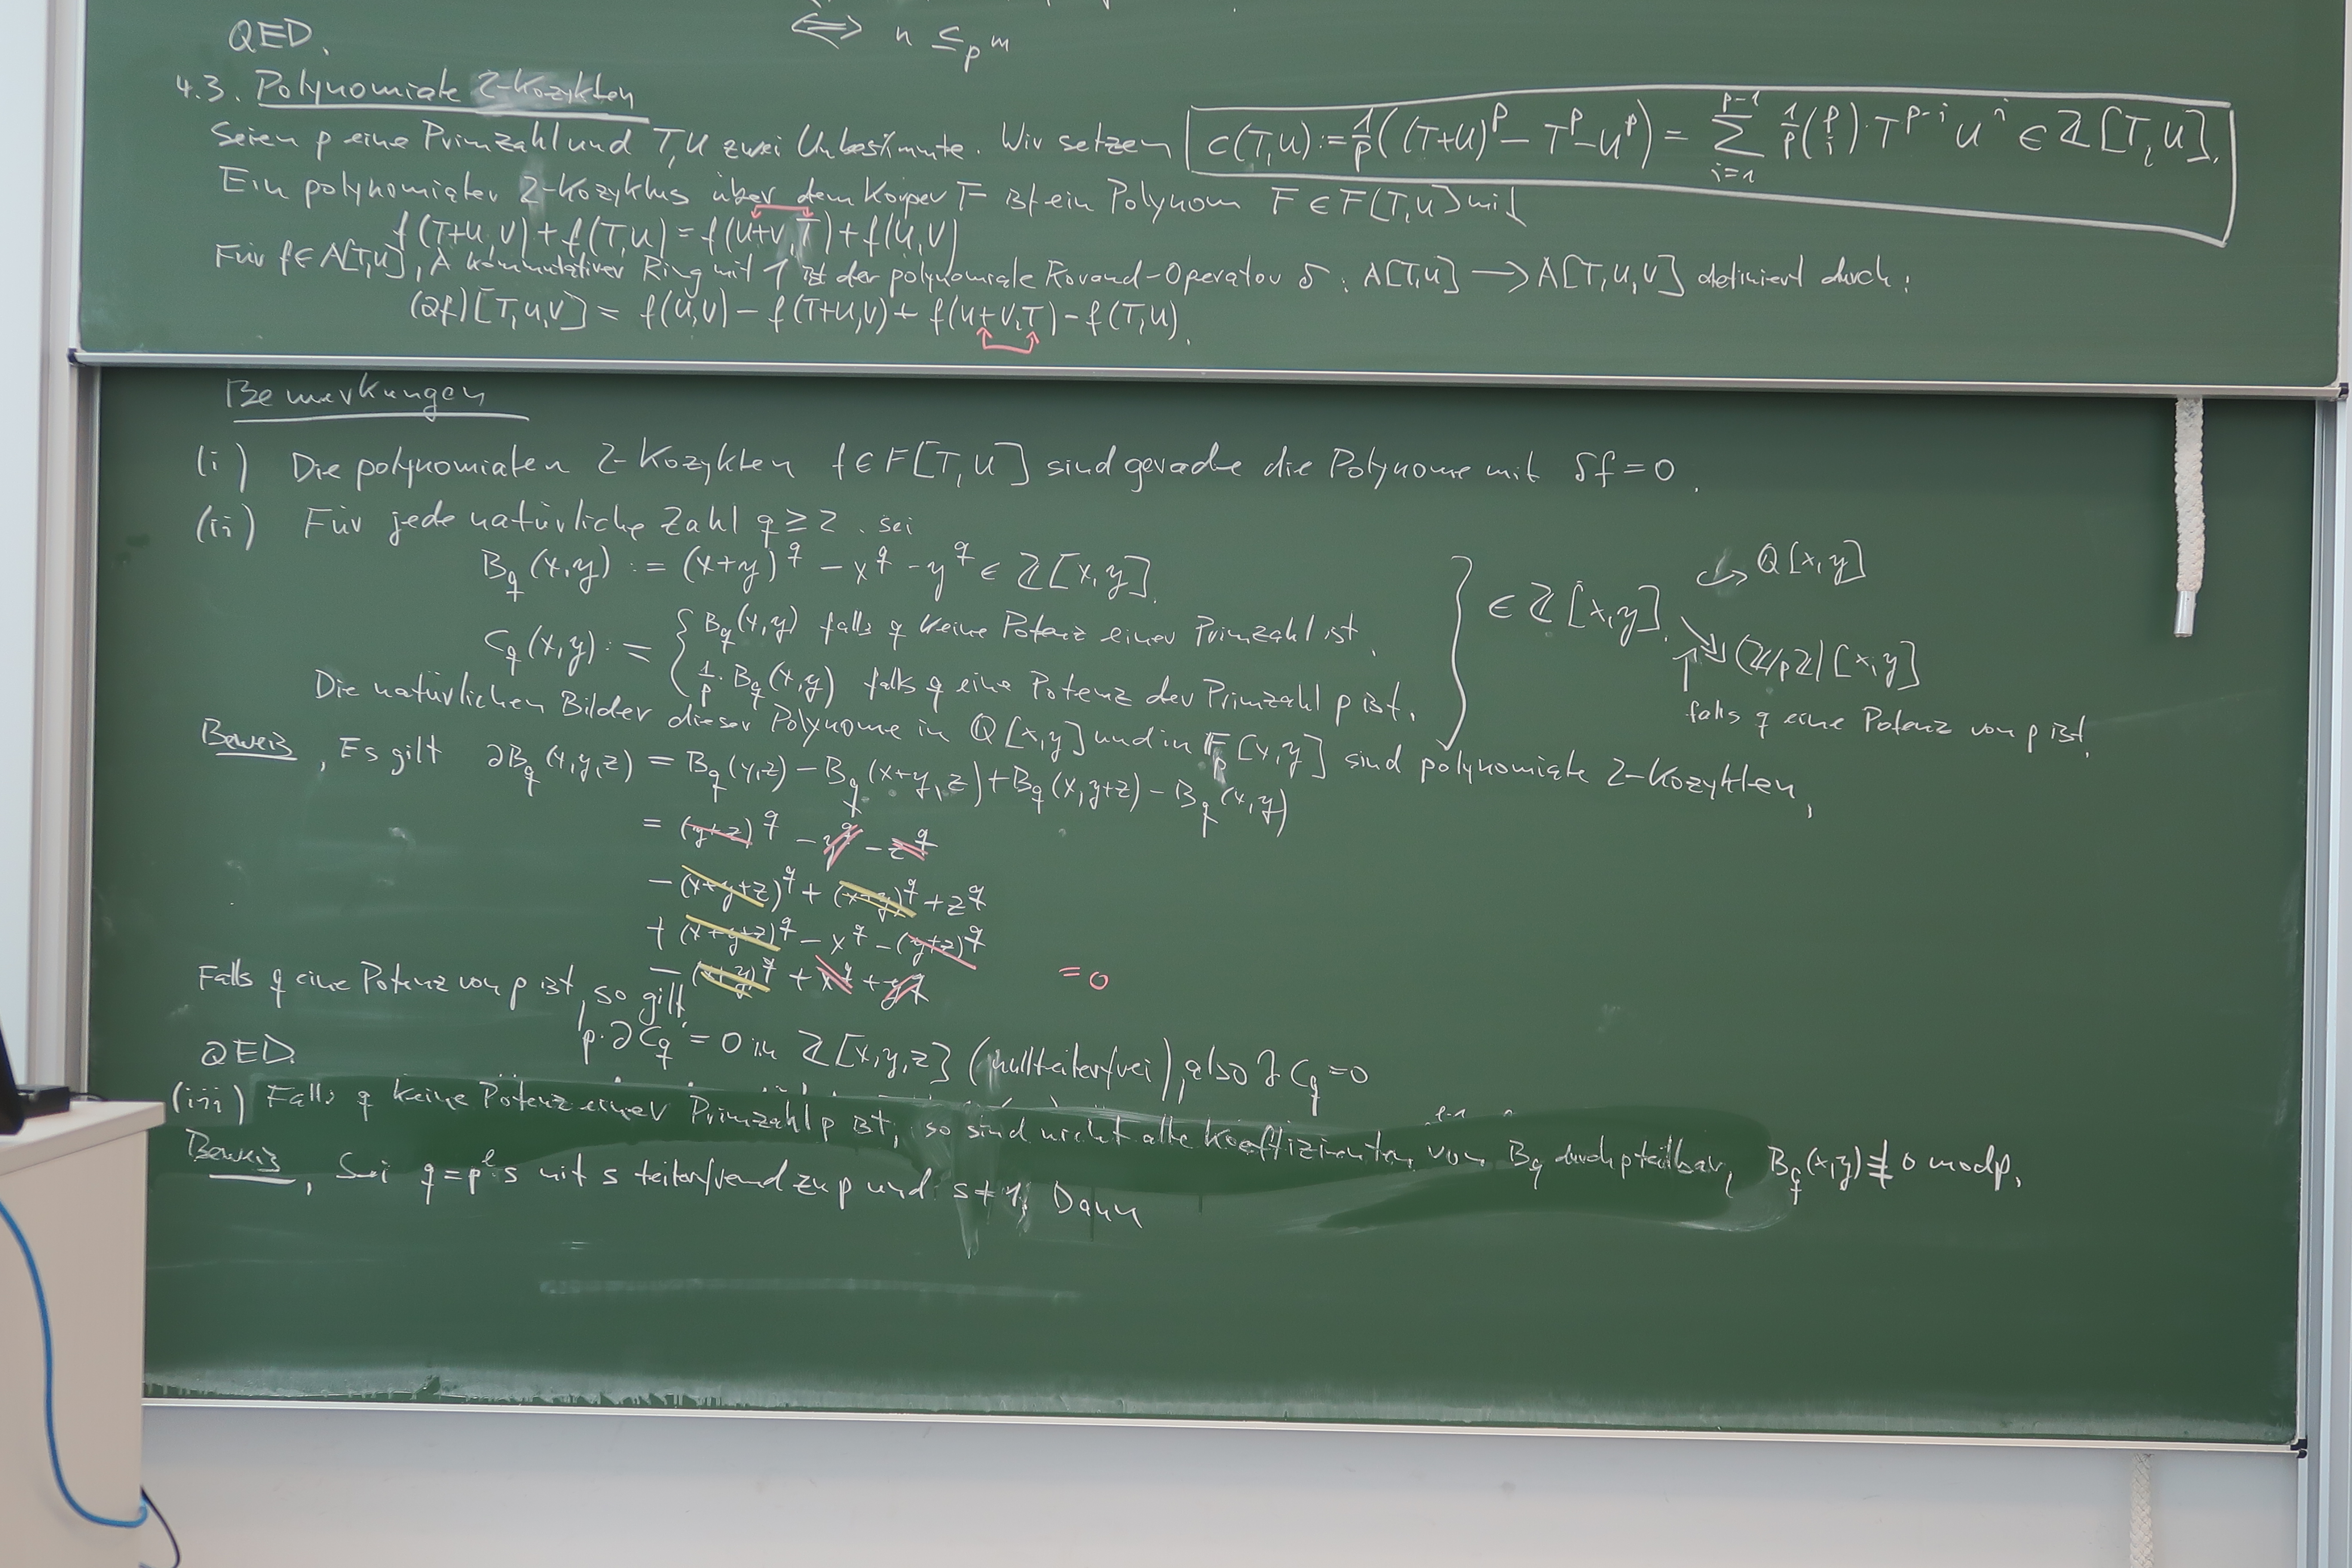 ⟺ n ≤_p m
QED.
4.3. Polynomiale 2-Kozyklen
Seien p eine Primzahl und T,U zwei Unbestimmte. Wir setzen c(T,U) := 1/p((T+U)^p − T^p − U^p) = ∑_{i=1}^{p-1} 1/p (p i)·T^{p-i} U^i ∈ ℤ[T,U].
Ein polynomialer 2-Kozyklus über dem Körper F ist ein Polynom F ∈ F[T,U] mit
f(T+U,V) + f(T,U) = f(U+V,T) + f(U,V)
Für f∈A[T,U], A kommutativer Ring mit 1 ist der polynomiale Korand-Operator δ : A[T,U] ⟶ A[T,U,V] definiert durch:
(∂f)[T,U,V] = f(U,V) − f(T+U,V) + f(U+V,T) − f(T,U).
Bemerkungen
(i) Die polynomialen 2-Kozyklen f∈F[T,U] sind gerade die Polynome mit δf=0.
(ii) Für jede natürliche Zahl q≥2 sei
B_q(x,y) := (x+y)^q − x^q − y^q ∈ ℤ[x,y].
C_q(x,y) := { B_q(x,y) falls q keine Potenz einer Primzahl ist.
1/p · B_q(x,y) falls q eine Potenz der Primzahl p ist.
} ∈ ℤ[x,y]. ↪ Q[x,y]
↠ (ℤ/pℤ)[x,y]
↑ falls q eine Potenz von p ist.
Die natürlichen Bilder dieser Polynome in Q[x,y] und in F_p[x,y] sind polynomiale 2-Kozyklen.
Beweis. Es gilt ∂B_q(x,y,z) = B_q(y,z) − B_q(x+y,z) + B_q(x,y+z) − B_q(x,y)
= (y+z)^q − y^q − z^q
− (x+y+z)^q + (x+y)^q + z^q
+ (x+y+z)^q − x^q − (y+z)^q
− (x+y)^q + x^q + y^q = 0
Falls q eine Potenz von p ist, so gilt
p·∂C_q = 0 in ℤ[x,y,z] (nullteilerfrei), also ∂C_q = 0
QED.
(iii) Falls q keine Potenz einer Primzahl p ist, so sind nicht alle Koeffizienten von B_q durch p teilbar, B_q(x,y) ≢ 0 mod p.
Beweis. Sei q = p^l s mit s teilerfremd zu p und s ≠ 1. Dann
=